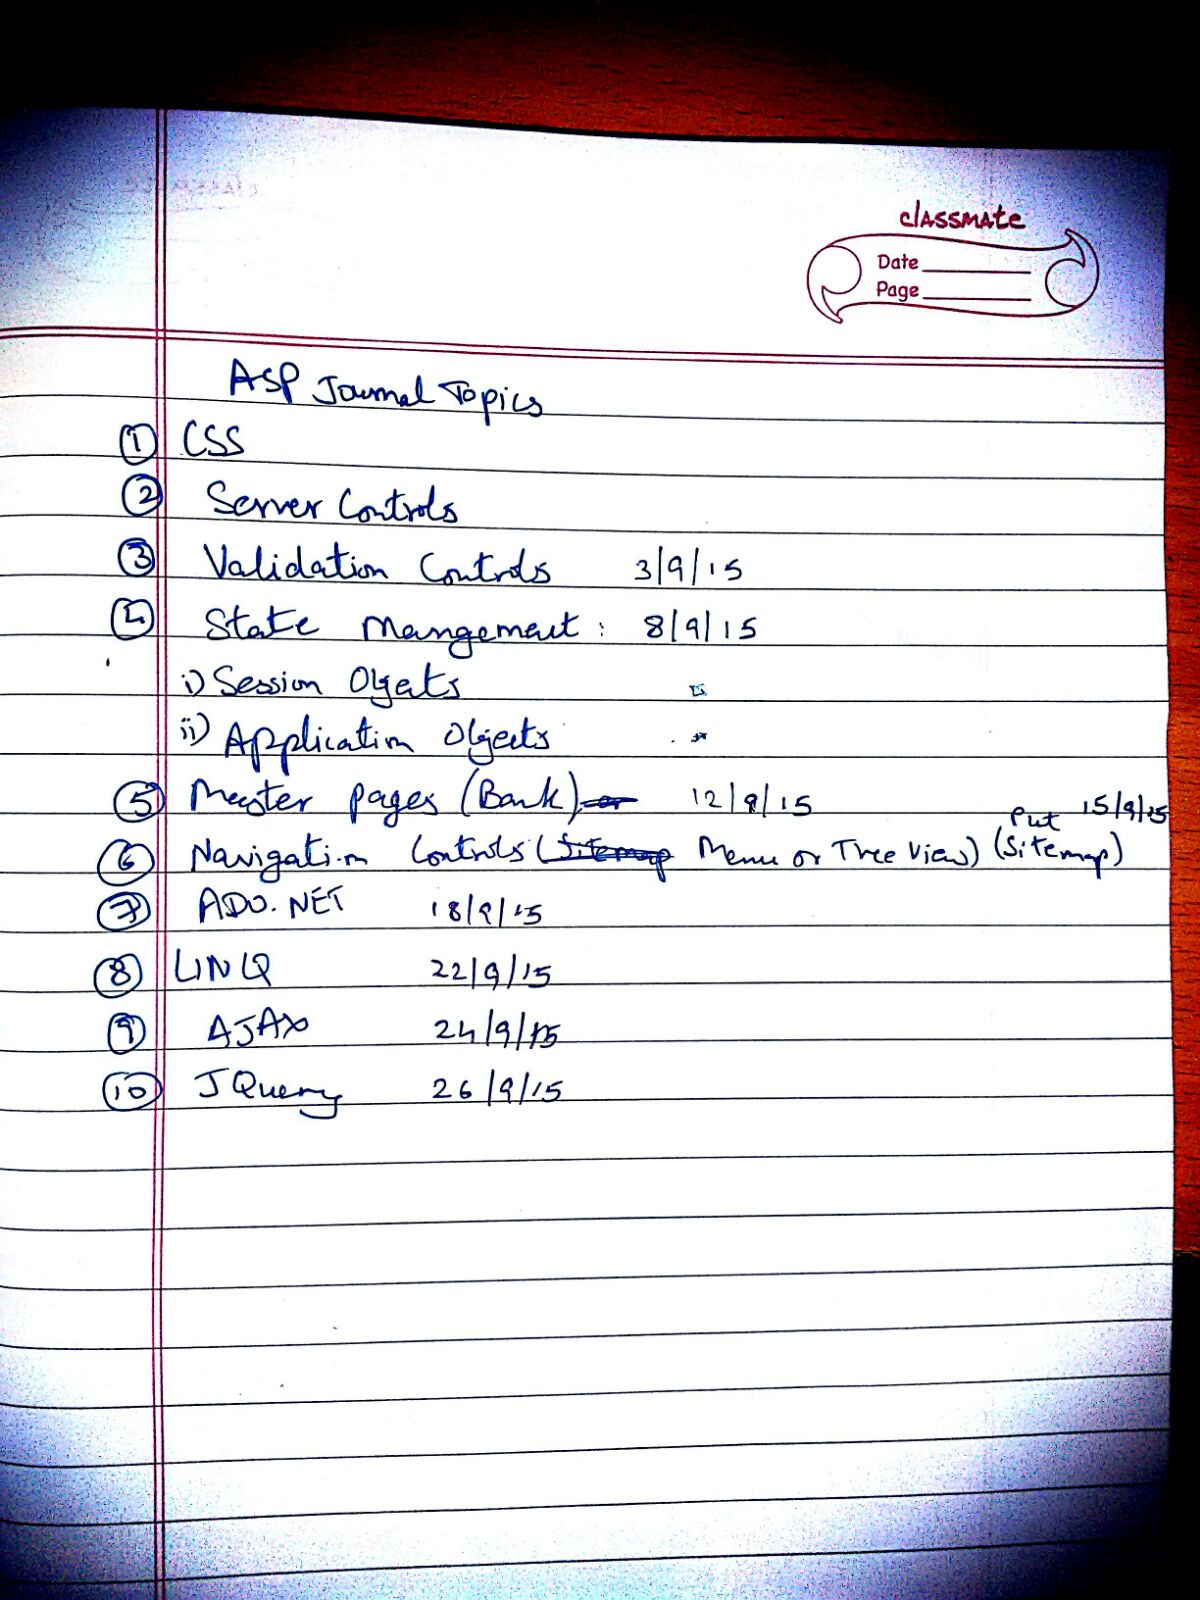 classmate
Date
Page
ASP Journal Topics
① CSS
② Server Controls
③ Validation Controls 3/9/15
④ State Mangement : 8/9/15
i) Session Objects
ii) Application Objects
⑤ Master pages (Bank) 12/9/15
⑥ Navigation Controls (Sitemap Menu or Tree View) (Put Sitemap) 15/9/15
⑦ ADO.NET 18/9/15
⑧ LINQ 22/9/15
⑨ AJAX 24/9/15
⑩ JQuery 26/9/15